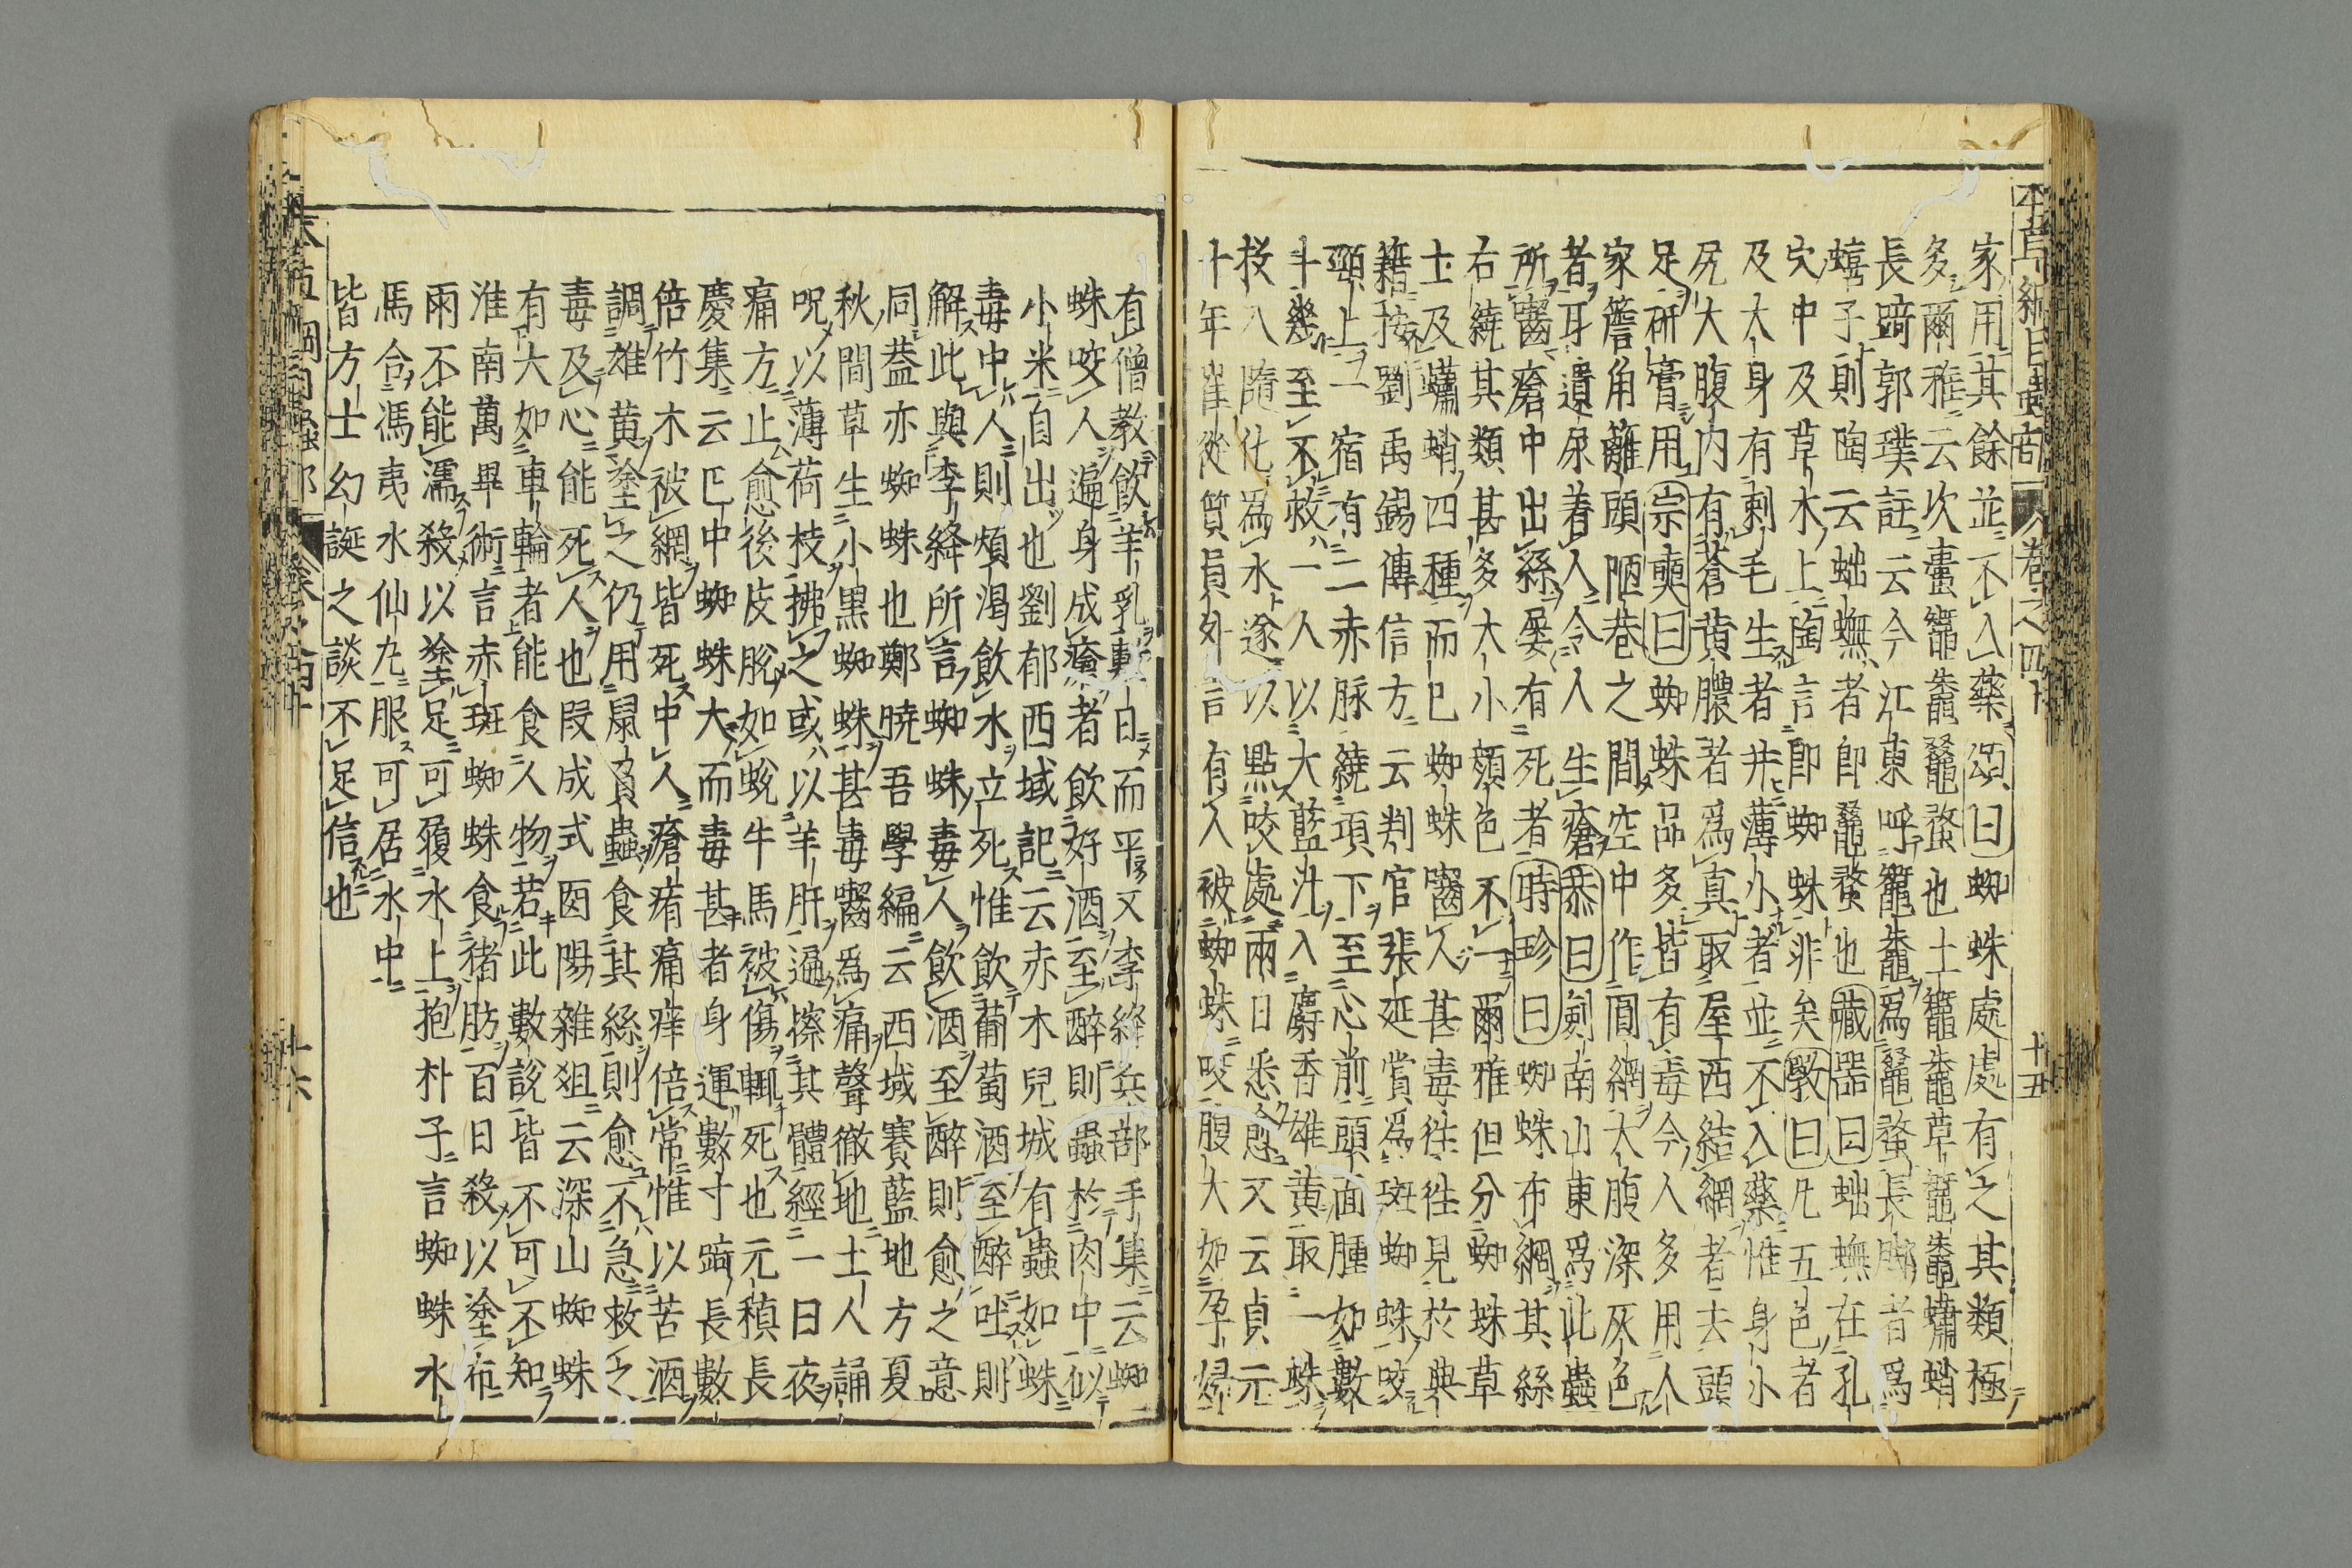 本草綱目蟲部 卷之四十 十五
家用其餘並不入藥頌曰蜘蛛處處有之其類極
多爾雅云次䖦鼅鼄鼄蝥也土鼅鼄草鼅鼄蠨蛸
長踦郭璞註云今江東呼鼅鼄爲鼄蝥長脚者爲
蟢子則陶云蚰蟱者即鼄蝥也藏器曰蚰蟱在孔
穴中及草木上陶言即蜘蛛非矣斆曰凡五色者
及大身有刺毛生者并薄小者並不入藥惟身小
尻大腹内有蒼黄膿者爲真取屋西結網者去頭
足研膏用宗奭曰蜘蛛品多皆有毒今人多用人
家簷角籬頭陋巷之間空中作圓網大腹深灰色
者耳遺尿着人令人生瘡恭曰劍南山東爲此蟲
所齧瘡中出絲屡有死者時珍曰蜘蛛布網其絲
右繞其類甚多大小顏色不一爾雅但分蜘蛛草
土及蠨蛸四種而已蜘蛛齧人甚毒徃徃見於典
籍按劉禹錫傳信方云判官張延賞爲斑蜘蛛咬
頸上一宿有二赤脉繞項下至心前頭面腫如數
斗幾至不救一人以大藍汁入麝香雄黄取一蛛
投入隨化爲水遂以點咬處兩日悉愈又云貞元
十年崔從質員外言有人被蜘蛛咬腹大如孕婦
有僧教飲羊乳數日而平又李絳兵部手集云蜘
蛛咬人遍身成瘡者飲好酒至醉則蟲於肉中似
小米自出也劉郁西域記云赤木兒城有蟲如蛛
毒中人則煩渇飲水立死惟飲葡萄酒至醉吐則
解此與李絳所言蜘蛛毒人飲酒至醉則愈之意
同葢亦蜘蛛也鄭曉吾學編云西域賽藍地方夏
秋間草生小黒蜘蛛甚毒齧爲痛聲徹地土人誦
呪以薄荷枝拂之或以羊肝遍擦其體經一日夜
痛方止愈後皮脫如蛻牛馬被傷輒死也元稹長
慶集云巴中蜘蛛大而毒甚者身運數寸踦長數
倍竹木被網皆死中人瘡痏痛痒倍常惟以苦酒
調雄黄塗之仍用鼠負蟲食其絲則愈不急救之
毒及心能死人也段成式酉陽雜俎云深山蜘蛛
有大如車輪者能食人物若此數說皆不可不知
淮南萬畢術言赤斑蜘蛛食猪肪百日殺以塗布
雨不能濡殺以塗足可履水上抱朴子言蜘蛛水
馬合馮夷水仙丸服可居水中
皆方士幻誕之談不足信也
十六